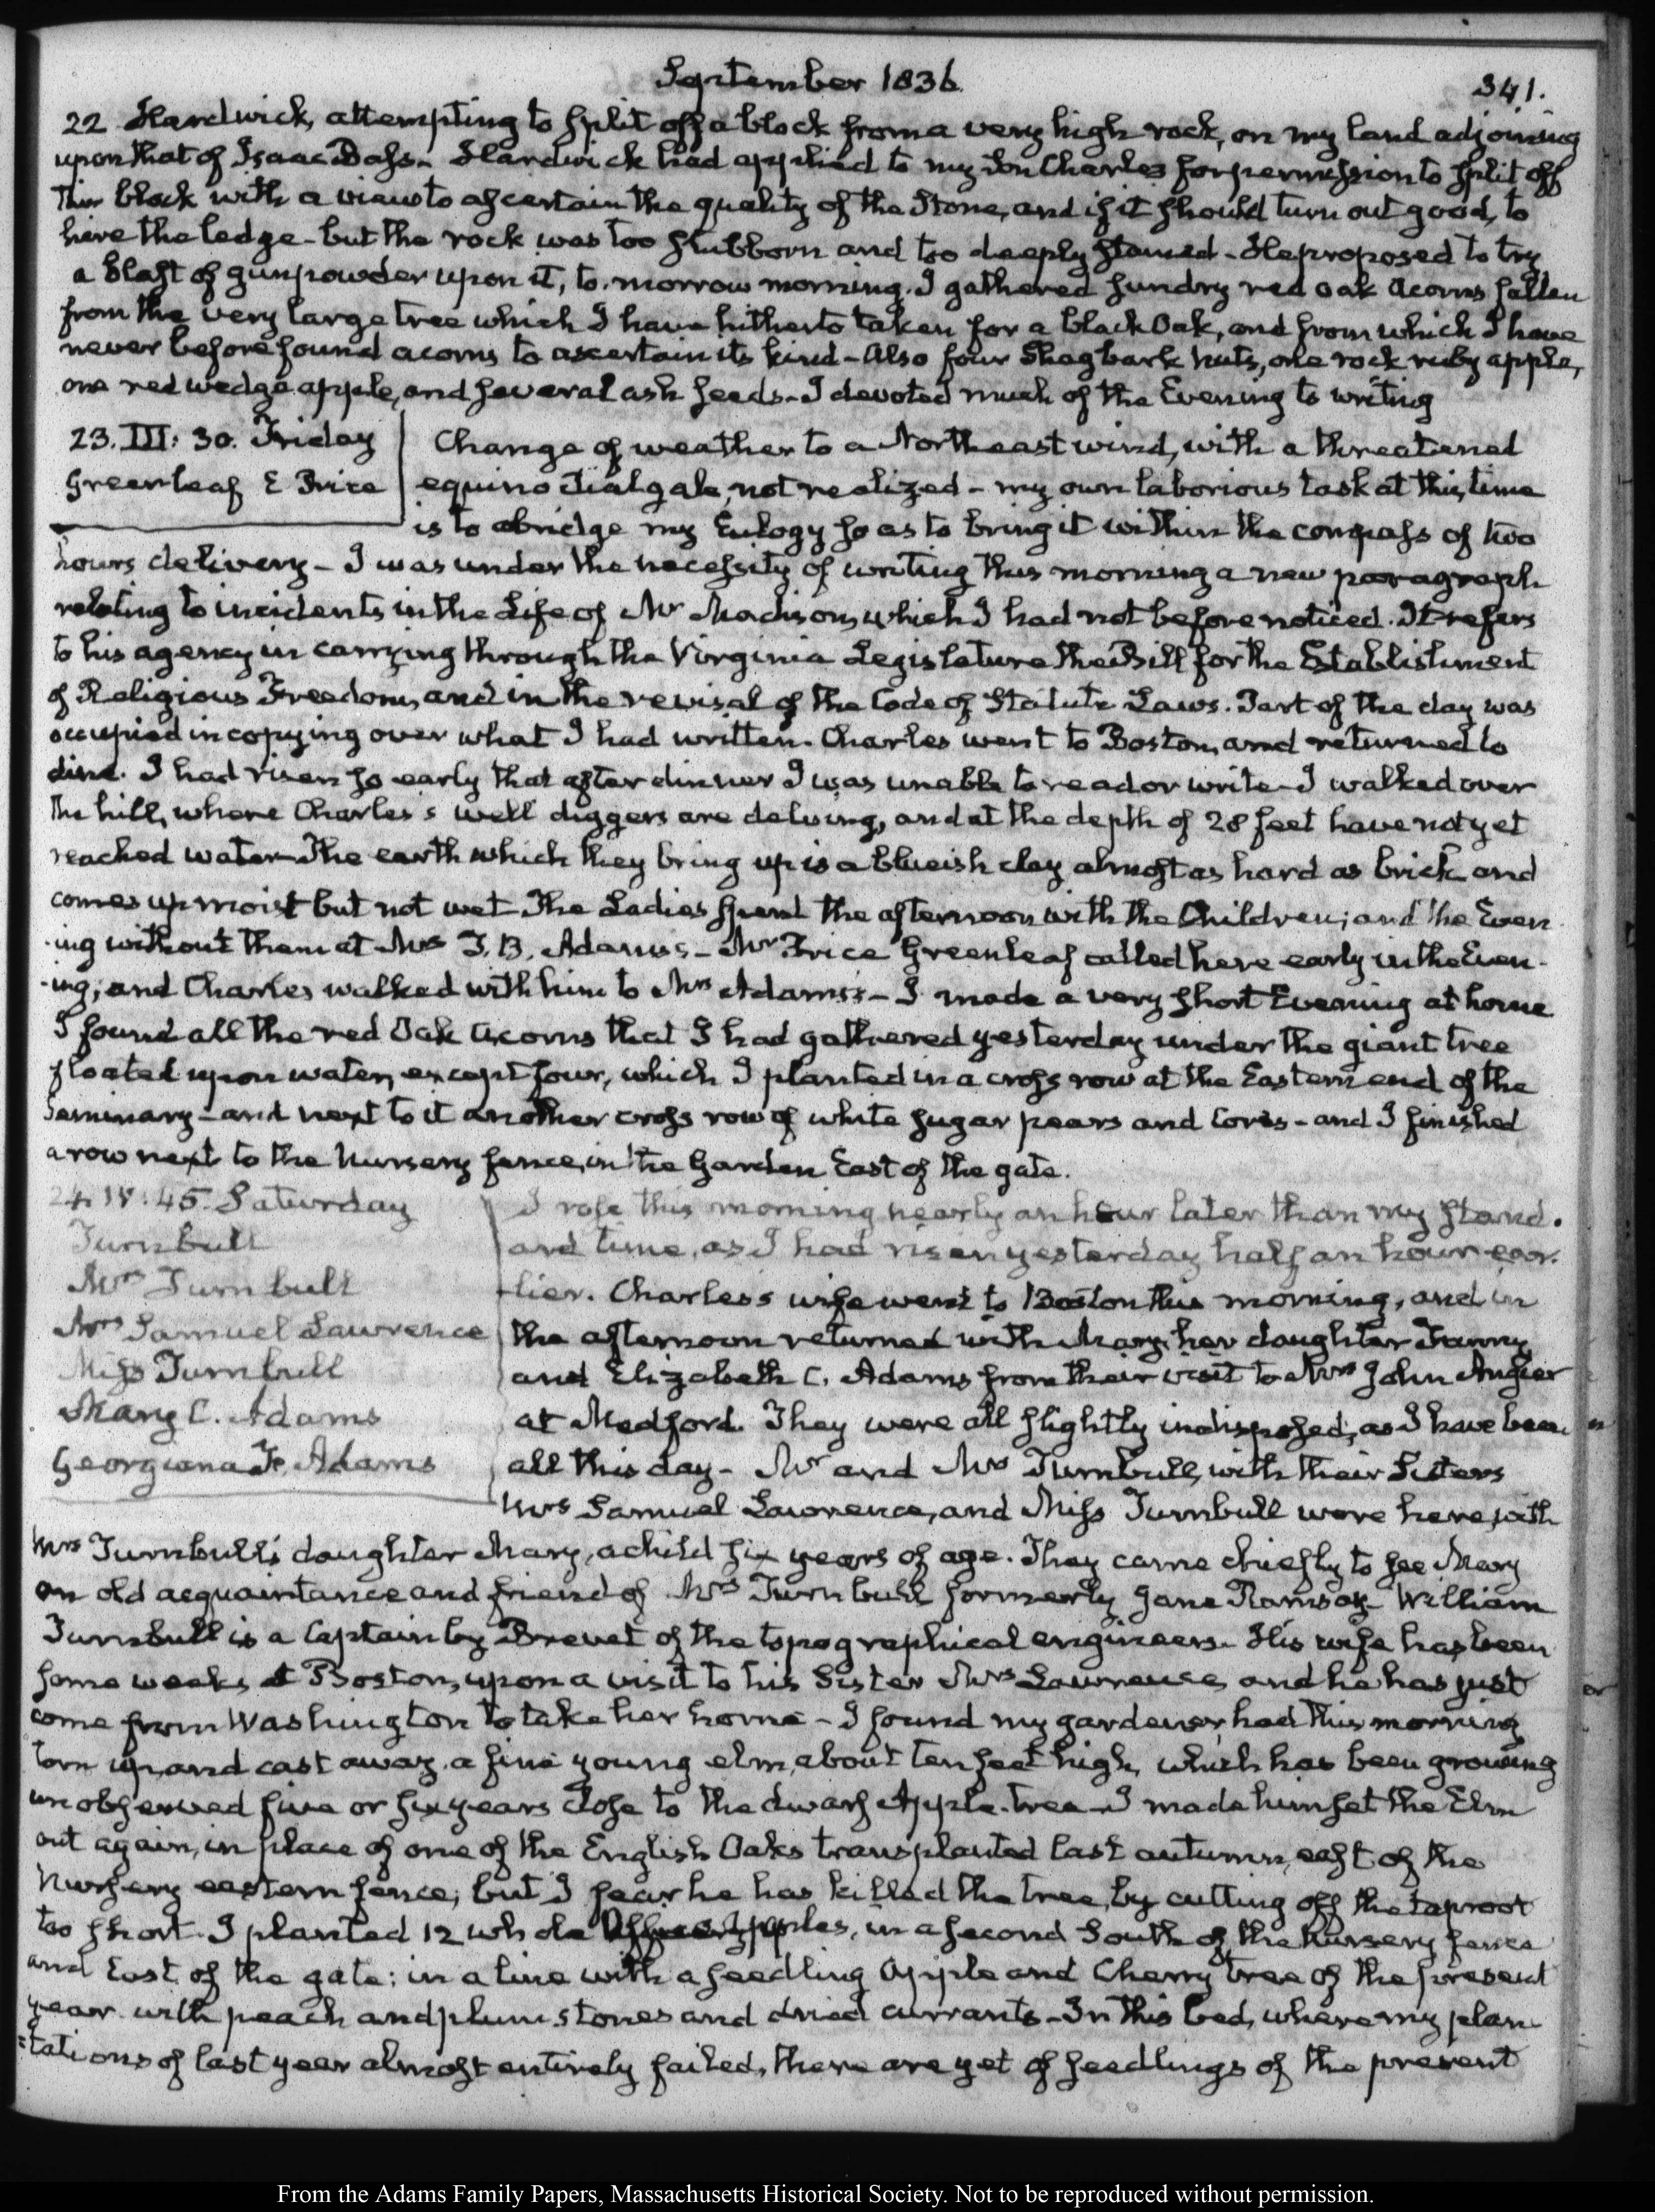 September 1836.
341.
22 Hardwick, attempting to split off a block from a very high rock, on my land adjoining
upon that of Isaac Bass. Hardwick had applied to my Son Charles for permission to split off
this block with a view to ascertain the quality of the Stone, and if it should turn out good, to
hire the ledge - but the rock was too stubborn and too deeply - He proposed to try
a blast of gunpowder upon it, to-morrow morning. I gathered sundry red oak acorns fallen
from the very large tree which I have hitherto taken for a black Oak, and from which I have
never before found acorns to ascertain its kind - Also four Shagbark nuts, one rock ruby apple,
one red wedge apple, and several ash seeds - I devoted much of the Evening to writing
23. III: 30. Friday
Greenleaf E Price
Change of weather to a North east wind, with a threatened
equinoctial gale, not realized - my own laborious task at this time
is to abridge my Eulogy so as to bring it within the compass of two
hours delivery - I was under the necessity of writing this morning a new paragraph
relating to incidents in the Life of Mr Madison, which I had not before noticed. It refers
to his agency in carrying through the Virginia Legislature the Bill for the Establishment
of Religious Freedom, and in the revisal of the Code of Statute Laws. Part of the day was
occupied in copying over what I had written. Charles went to Boston, and returned to
dine. I had risen so early that after dinner I was unable to read or write - I walked over
the hill, where Charles's well diggers are delving, and at the depth of 28 feet have not yet
reached water - The earth which they bring up is a blueish clay almost as hard as brick and
comes up moist but not wet - The Ladies spent the afternoon with the Children; and the Even
-ing without them at Mrs T. B. Adams's - Mr Price Greenleaf called here early in the Even-
-ing; and Charles walked with him to Mrs Adams's - I made a very short Evening at home
I found all the red Oak Acorns that I had gathered yesterday under the giant tree
floated upon water, except four, which I planted in a cross row at the Eastern end of the
Seminary - and next to it another cross row of white sugar pears and Cores - and I finished
a row next to the Nursery fence, in the Garden East of the gate.
24. IV: 45. Saturday
Turnbull
Mrs Turnbull
Mrs Samuel Lawrence
Miss Turnbull
Mary C. Adams
Georgiana F. Adams
I rose this morning nearly an hour later than my stand.
ard time, as I had risen yesterday half an hour ear.
-lier. Charles's wife went to Boston this morning, and in
the afternoon returned with Mary, her daughter Fanny
and Elizabeth C. Adams from their visit to Mrs John Angier
at Medford. They were all slightly indisposed, as I have been
all this day - Mr and Mrs Turnbull, with their Sisters
Mrs Samuel Lawrence, and Miss Turnbull were here, with
Mrs Turnbull's daughter Mary, a child six years of age. They came chiefly to see Mary
an old acquaintance and friend of Mrs Turnbull formerly Jane Ramsay - William
Turnbull is a Captain by Brevet of the topographical engineers. His wife has been
some weeks at Boston, upon a visit to his Sister Mrs Lawrence, and he has just
come from Washington to take her home - I found my gardener had this morning
torn up, and cast away, a fine young elm, about ten feet high, which has been growing
unobserved five or six years close to the dwarf Apple-tree - I made him set the Elm
out again, in place of one of the English Oaks transplanted last autumn, east of the
Nursery eastern fence; but I fear he has killed the tree, by cutting off the taproot
too short. I planted 12 whole apples, in a second South of the Nursery fence
and East of the gate: in a line with a seedling Apple and Cherry tree of the present
year with peach and plum stones and dried currants - In this bed, where my plan
=tations of last year almost entirely failed, there are yet of seedlings of the present
From the Adams Family Papers, Massachusetts Historical Society. Not to be reproduced without permission.